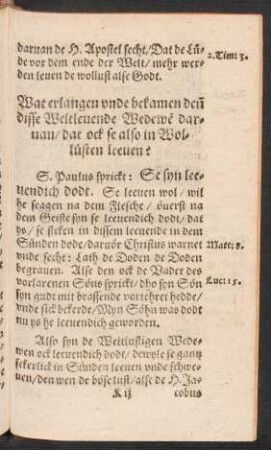 daruan de H. Apostel secht/Dat de Lü-
de vor dem ende der Welt/mehr wer-
den leuen de wollust alse Godt.
2. Tim: 3.
Wat erlangen vnde bekamen deñ
disse Weltleuende Wedewē dar-
uan/dat ock se also in Wol-
lüsten leeuen?
S. Paulus sprickt: Se syn lee-
uendich dodt. Se leeuen wol/wil
he seggen na dem Flesche/ öuerst na
dem Geiste syn se leeuendich dodt/dat
ys/se steken in dissem leeuende in dem
Sünden dode/daruör Christus warnet
vnde secht: Lath de Doden de Doden
begrauen. Alse den ock de Vader des
vorlarenen Söns sprickt/dho syn Sön
syn gudt mit brassende vortehret hedde/
vnde sick bekerde/Myn Söhn was dodt
nu ys he leeuendich geworden.
Matt: 8.
Luc: 15.
Also syn de Weltlustigen Wede-
wen ock leeuendich dodt/dewyle se gantz
sekerlick in Sünden leeuen vnde schwe-
uen/den wen de böse lust/alse de H. Ja-
K ij
cobus